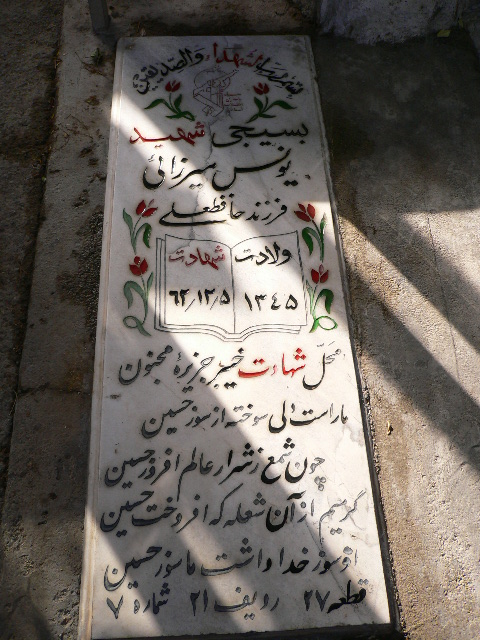 بسم رب الشهداء والصدیقین
بسیجی شهید
یونس میرزائی
فرزند حافظعلی
ولادت شهادت
۱۳۴۵ ۶۲/۱۲/۵
محلّ شهادت خیبر جزیرهٔ مجنون
ماراست دلی سوخته از سوز حسین
چون شمع ز شرار عالم افروز حسین
گرمیم از آن شعله که افروخت حسین
او سوز خدا داشت ما سوز حسین
قطعه ۲۷ ردیف ۲۱ شماره ۷